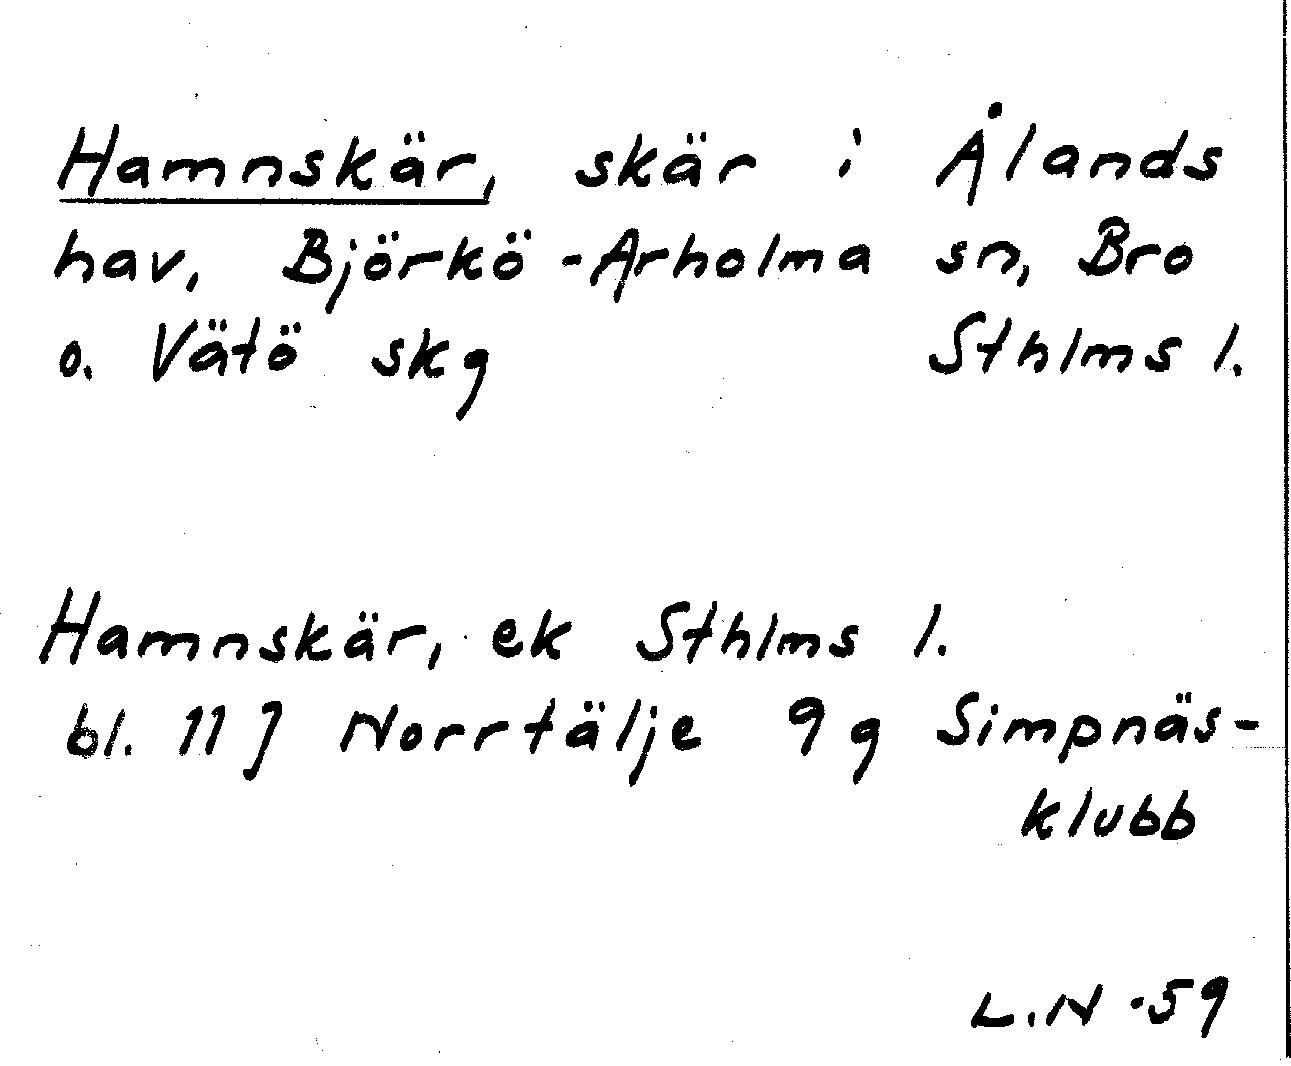 Hamnskär, skär i Ålands
hav, Björkö-Arholma sn, Bro
o. Vätö skg Sthlms l.
Hamnskär, ek Sthlms l.
bl. 11 J Norrtälje 9 g Simpnäs-
klubb
L.N -59